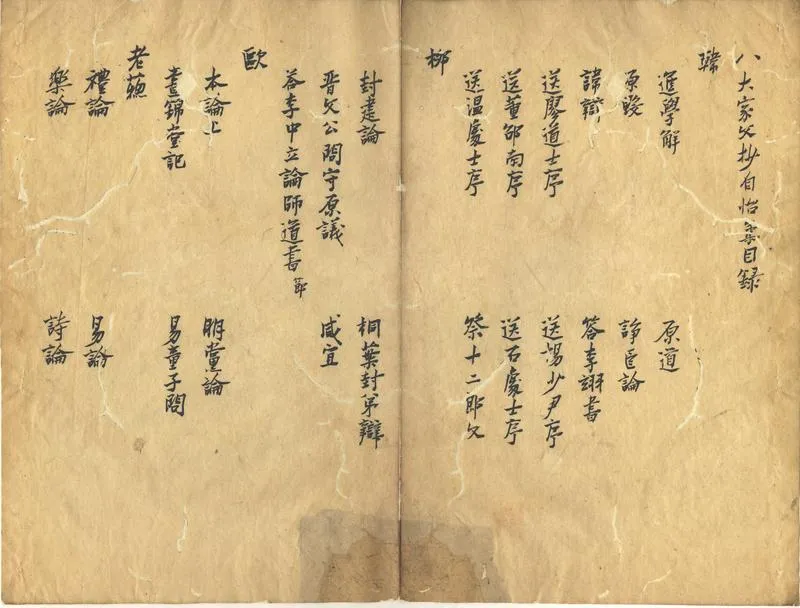 八大家文抄自怡集目録
韓
進學解　原道
原毀　諍臣論
諱辯　答李翊書
送廖道士序　送楊少尹序
送董邵南序　送石處士序
送温處士序　祭十二郎文
柳
封建論　桐葉封弟辯
晋文公問守原議　咸宜
答李中立論師道書節
歐
本論上　朋黨論
晝錦堂記　易童子問
老蘓
禮論　易論
楽論　詩論